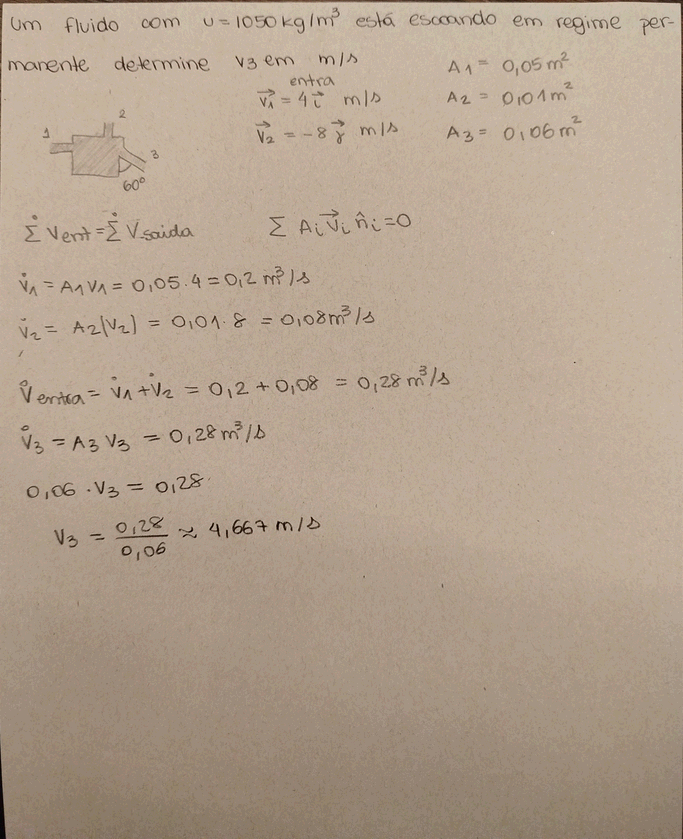 Um fluido com υ = 1050 kg/m³ está escoando em regime per-
manente determine v3 em m/s
entra
v⃗1 = 4i⃗ m/s
v⃗2 = -8j⃗ m/s
A1 = 0,05 m²
A2 = 0,01 m²
A3 = 0,06 m²
1
2
3
60°
Σ V̇ent = Σ V̇saida
Σ Ai v⃗i n̂i = 0
V̇1 = A1 V1 = 0,05 . 4 = 0,2 m³/s
V̇2 = A2 (V2) = 0,01 . 8 = 0,08 m³/s
V̇entra = V̇1 + V̇2 = 0,2 + 0,08 = 0,28 m³/s
V̇3 = A3 V3 = 0,28 m³/s
0,06 . V3 = 0,28
V3 = 0,28/0,06 ≈ 4,667 m/s